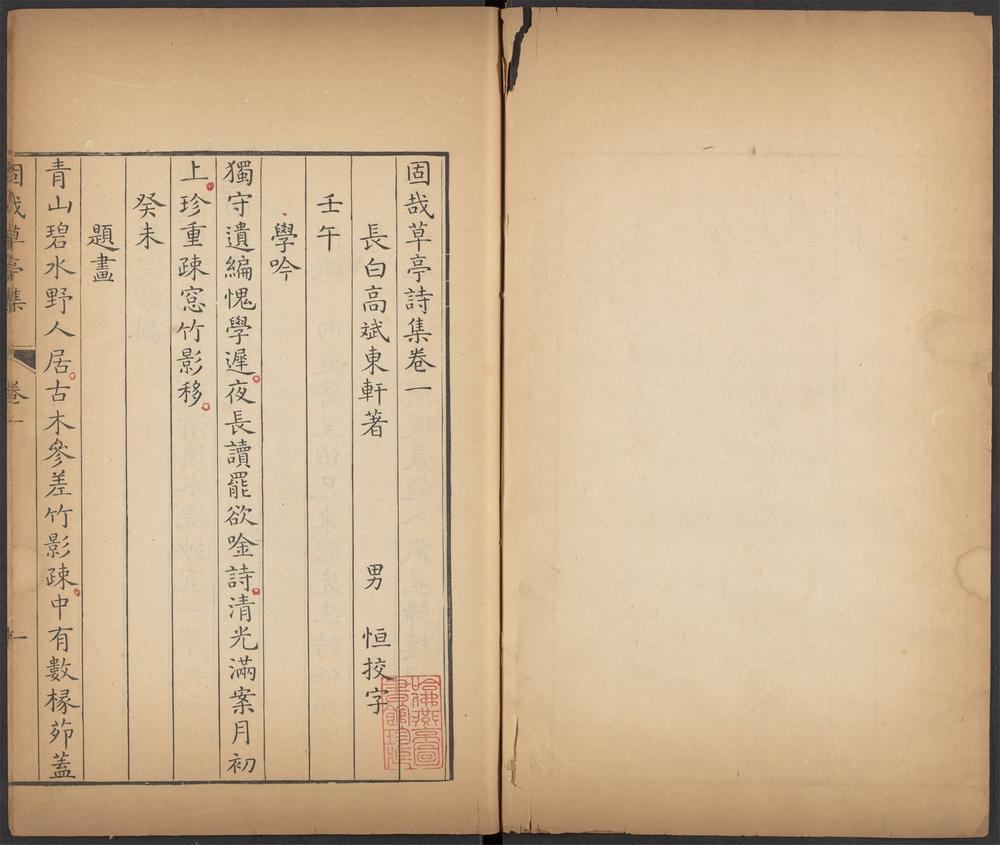 固哉草亭詩集卷一
長白高斌東軒著 男 恒挍字
壬午
學吟
獨守遺編愧學遲夜長讀罷欲唫詩清光滿案月初
上珍重疎窓竹影移
癸未
題畫
青山碧水野人居古木參差竹影疎中有數椽茆蓋
固哉草亭集 卷一 一
哈佛燕京圖書館珍藏